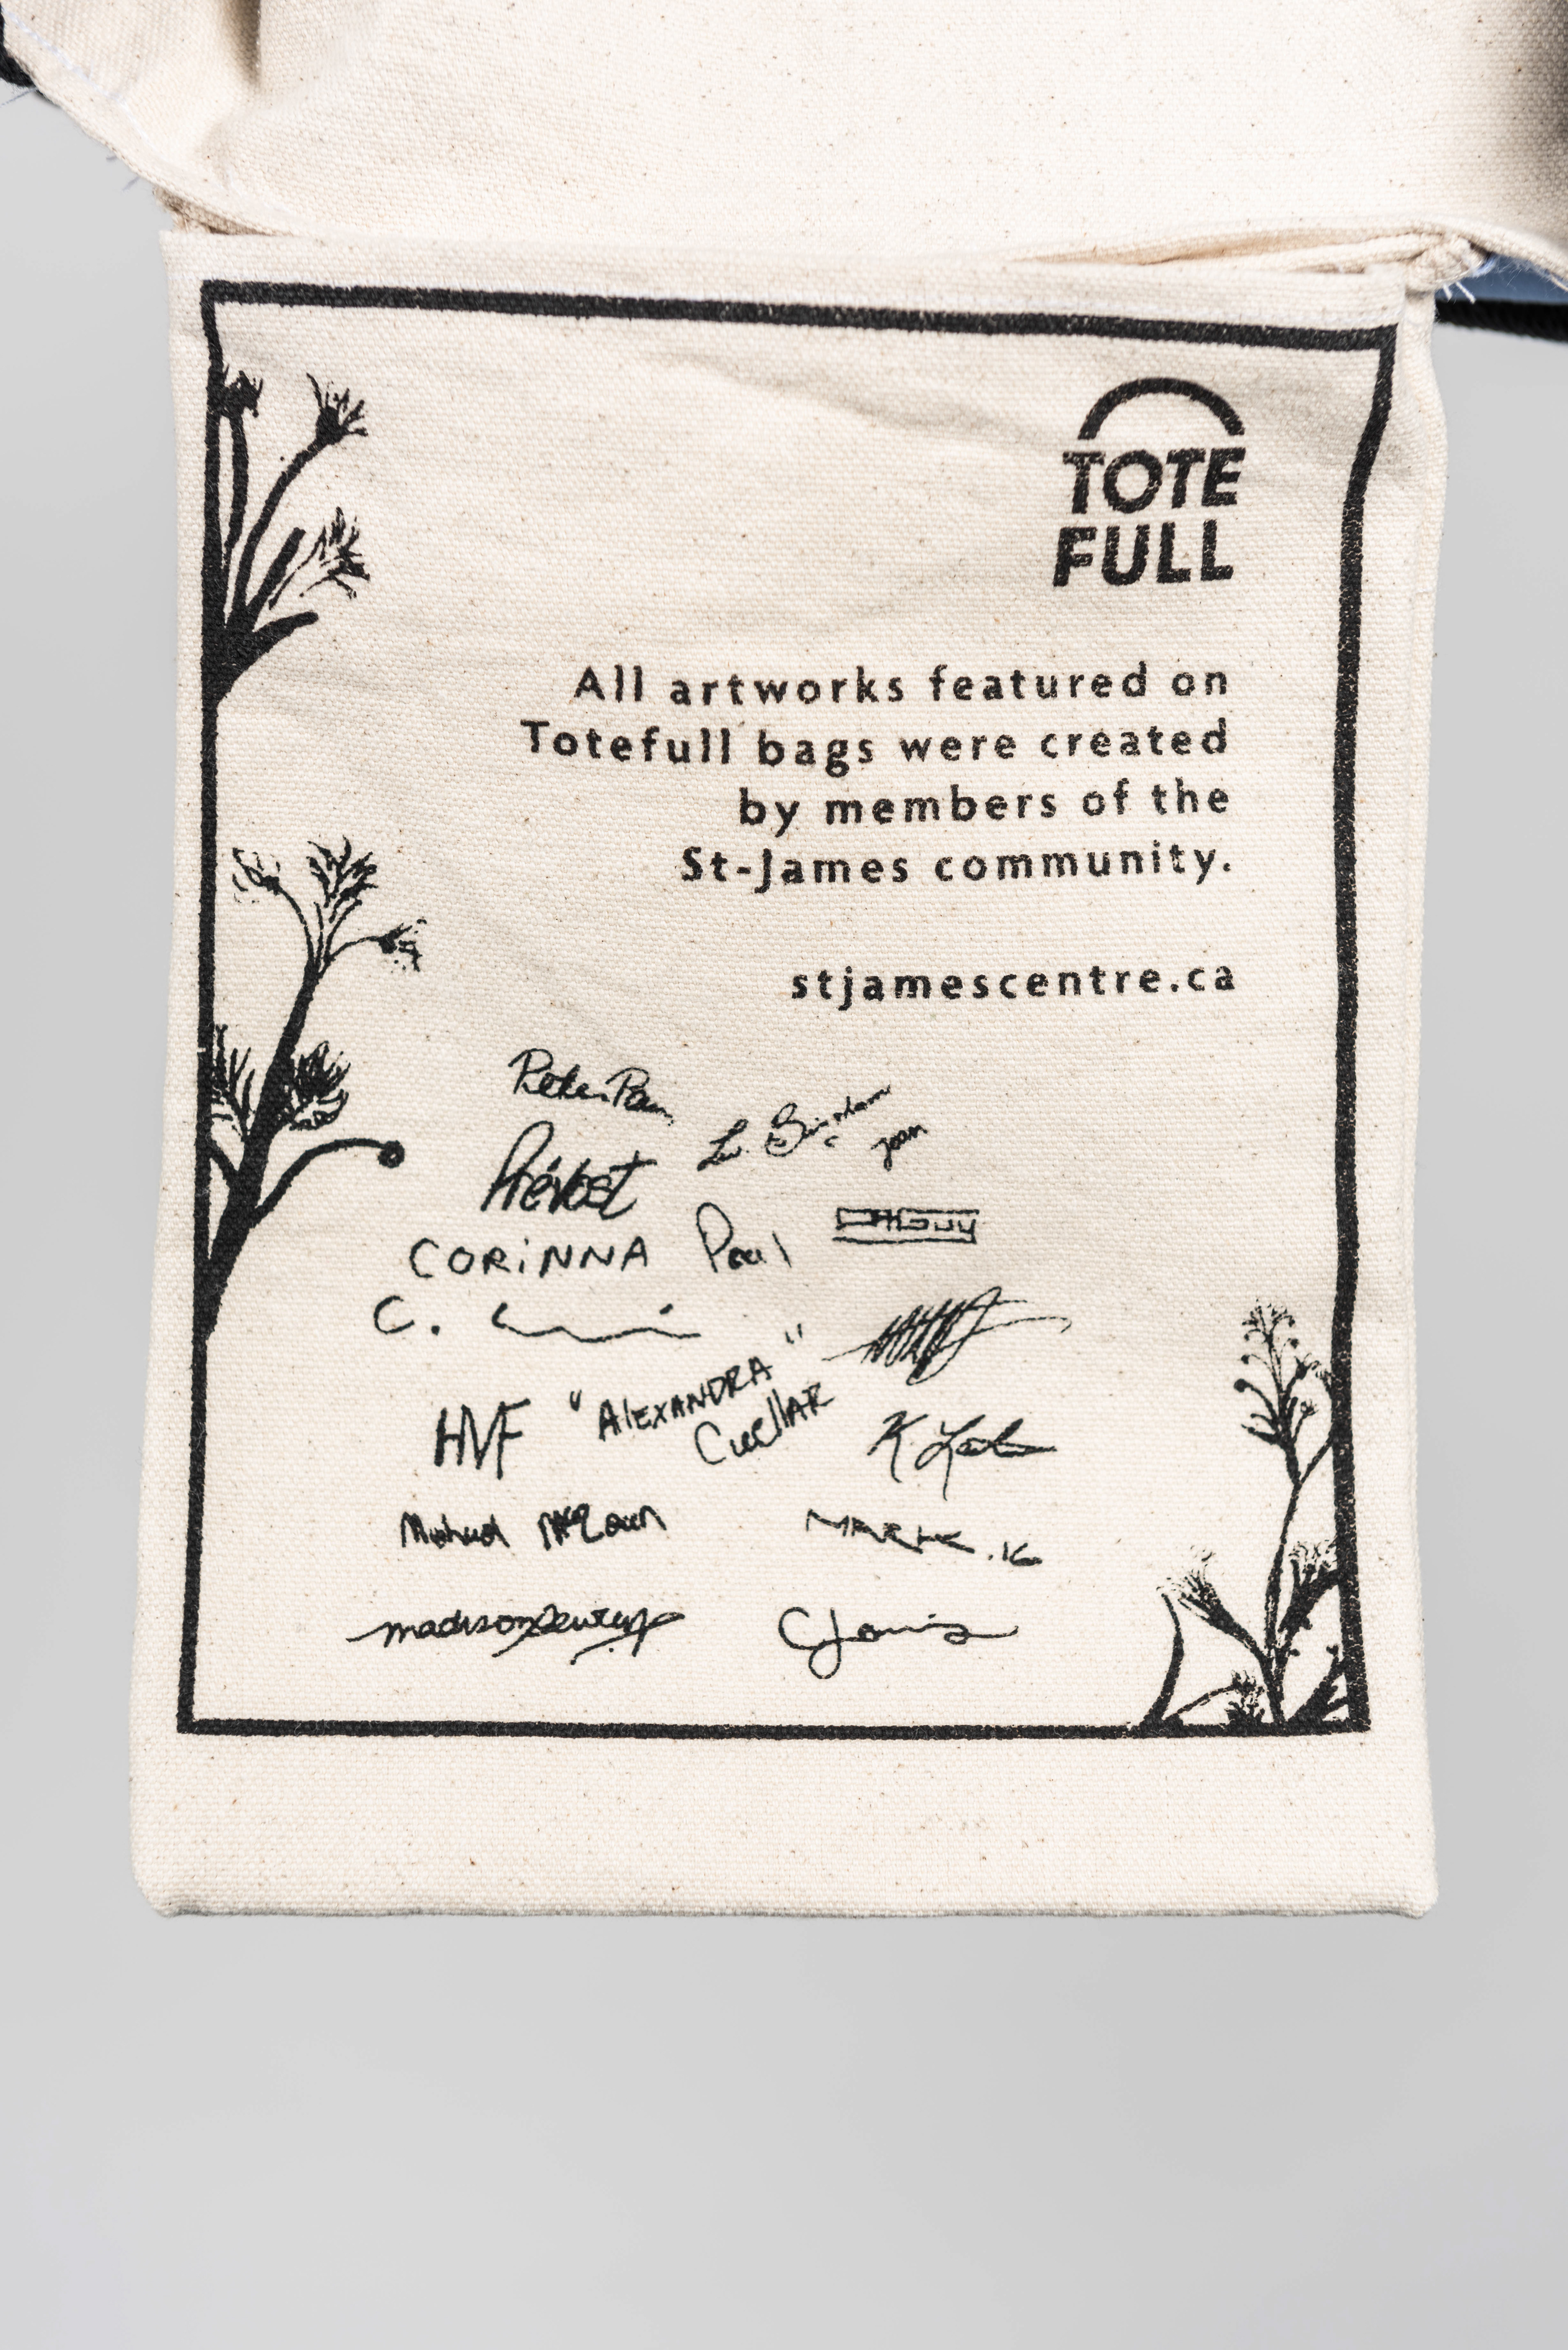 TOTE
FULL
All artworks featured on
Totefull bags were created
by members of the
St-James community.
stjamescentre.ca
Peter Pan
Prévost
CORiNNA Paul
C.
HVF "AlEXANDRA"
CuellAR
K
Michael
MARK.16
madison